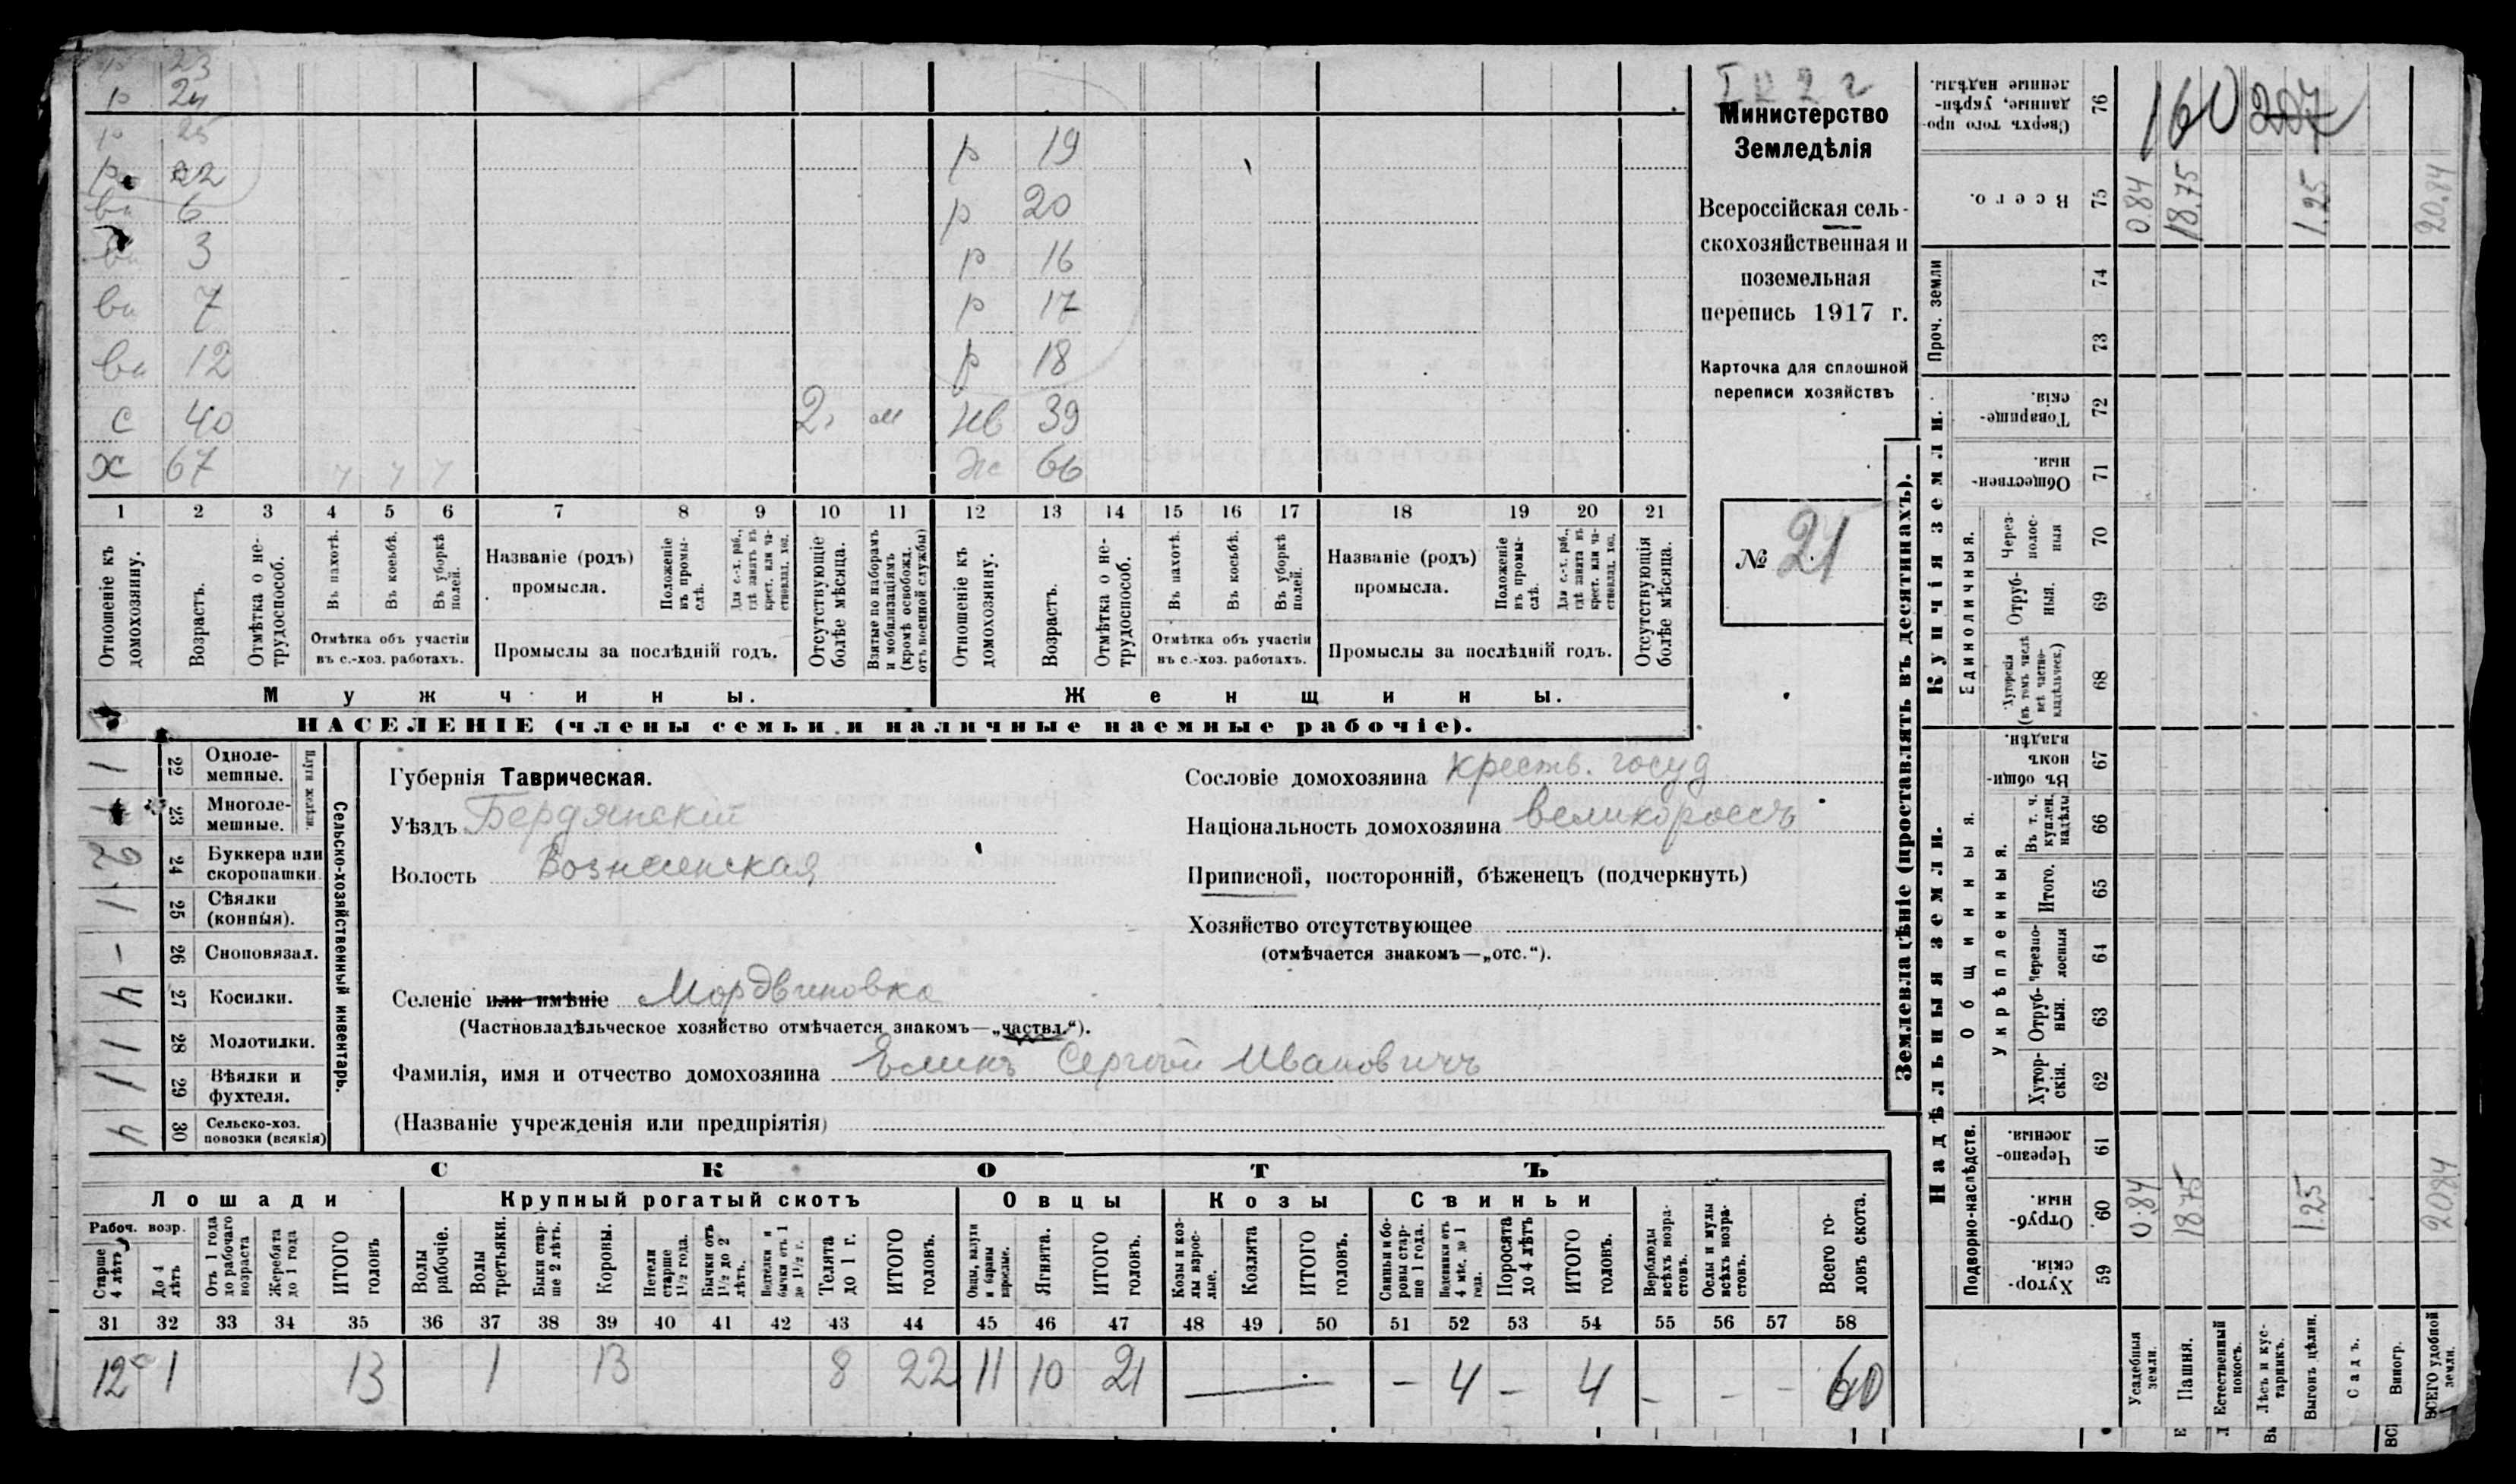 р 23
р 24
р 25
р 22
вн 6
3
вн 7
вн 12
с 40 2 м
х 67
р 19
р 20
р 16
р 17
р 18
нв 39
жс 66
1 2 3 4 5 6 7 8 9 10 11 12 13 14 15 16 17 18 19 20 21
Отношеніе къ домохозяину.
Возрастъ.
Отмѣтка о нетрудоспособ.
Въ пахотѣ.
Въ косьбѣ.
Въ уборкѣ полей.
Отмѣтка объ участіи
въ с.-хоз. работахъ.
Названіе (родъ)
промысла.
Положеніе въ промыслѣ.
Для с.-х. раб., гдѣ занятъ въ крест. или частновлад. хоз.
Промыслы за послѣдній годъ.
Отсутствующіе болѣе мѣсяца.
Взятые по наборамъ и мобилизаціямъ (кромѣ освобожд. отъ военной службы)
Отношеніе къ домохозяину.
Возрастъ.
Отмѣтка о нетрудоспособ.
Въ пахотѣ.
Въ косьбѣ.
Въ уборкѣ полей.
Отмѣтка объ участіи
въ с.-хоз. работахъ.
Названіе (родъ)
промысла.
Положеніе въ промыслѣ.
Для с.-х. раб., гдѣ занята въ крест. или частновлад. хоз.
Промыслы за послѣдній годъ.
Отсутствующія болѣе мѣсяца.
Мужчины.
Женщины.
НАСЕЛЕНІЕ (члены семьи и наличные наемные рабочіе).
Министерство
Земледѣлія
Всероссійская сель-
скохозяйственная и
поземельная
перепись 1917 г.
Карточка для сплошной
переписи хозяйствъ
№ 21
1 22 Однолемешные.
23 Многолемешные.
Плуги желѣзн.
2 24 Буккера или скоропашки.
1 25 Сѣялки (конныя).
– 26 Сноповязал.
4 27 Косилки.
1 28 Молотилки.
1 29 Вѣялки и фухтеля.
4 30 Сельско-хоз. повозки (всякія)
Сельско-хозяйственный инвентарь.
Губернія Таврическая.
Уѣздъ Бердянскій
Волость Вознесенская
Селеніе или имѣніе Мордвиновка
(Частновладѣльческое хозяйство отмѣчается знакомъ—„частвл.“).
Фамилія, имя и отчество домохозяина Елинъ Сергѣй Ивановичъ
(Названіе учрежденія или предпріятія)
Сословіе домохозяина крестъ. госуд
Національность домохозяина великороссъ
Приписной, посторонній, бѣженецъ (подчеркнуть)
Хозяйство отсутствующее
(отмѣчается знакомъ—„отс.“).
СКОТЪ
Лошади
Рабоч. возр.
Старше 4 лѣтъ
До 4 лѣтъ
Отъ 1 года до рабочаго возраста
Жеребята до 1 года
ИТОГО головъ
Крупный рогатый скотъ
Волы рабочіе.
Волы третьяки.
Быки старше 2 лѣтъ.
Коровы.
Нетели старше 1½ года.
Бычки отъ 1½ до 2 лѣтъ.
Подтелки и бычки отъ 1 до 1½ г.
Телята до 1 г.
ИТОГО головъ.
Овцы
Овцы, валухи и бараны взрослые.
Ягнята.
ИТОГО головъ.
Козы
Козы и козлы взрослые.
Козлята
ИТОГО головъ.
Свиньи
Свиньи и боровы старше 1 года.
Подсвинки отъ 4 мѣс. до 1 года.
Поросята до 4 лѣтъ
ИТОГО головъ.
Верблюды всѣхъ возрастовъ.
Ослы и мулы всѣхъ возрастовъ.
Всего головъ скота.
31 32 33 34 35 36 37 38 39 40 41 42 43 44 45 46 47 48 49 50 51 52 53 54 55 56 57 58
12 1 13 1 13 8 22 11 10 21 — – 4 – 4 – – – 60
Землевладѣніе (проставлять въ десятинахъ).
Надѣльныя земли.
Подворно-наслѣдств.
Хуторскія. 59
Отрубныя. 60 0.84 18.75 1.25 20.84
Черезполосныя. 61
Общинныя.
Укрѣпленныя.
Хуторскія. 62
Отрубныя. 63
Черезполосныя 64
Итого. 65
Въ т. ч. куплен. надѣлы 66
Въ общинномъ владѣн. 67
Купчія земли.
Единоличныя.
Хуторскія (въ томъ числѣ всѣ частновладѣльческ.) 68
Отрубныя. 69
Черезполосныя 70
Общественныя. 71
Товарищескія. 72
Проч. земли
73
74
Всего. 75 0.84 18.75 1.25 20.84
Сверхъ того проданные, укрѣпленные надѣлы. 76
160 207
Усадебныя земли.
Пашня.
Естественный покосъ.
Лѣсъ и кустарникъ.
Выгонъ цѣлин.
Садъ.
Виногр.
ВСЕГО удобной земли.